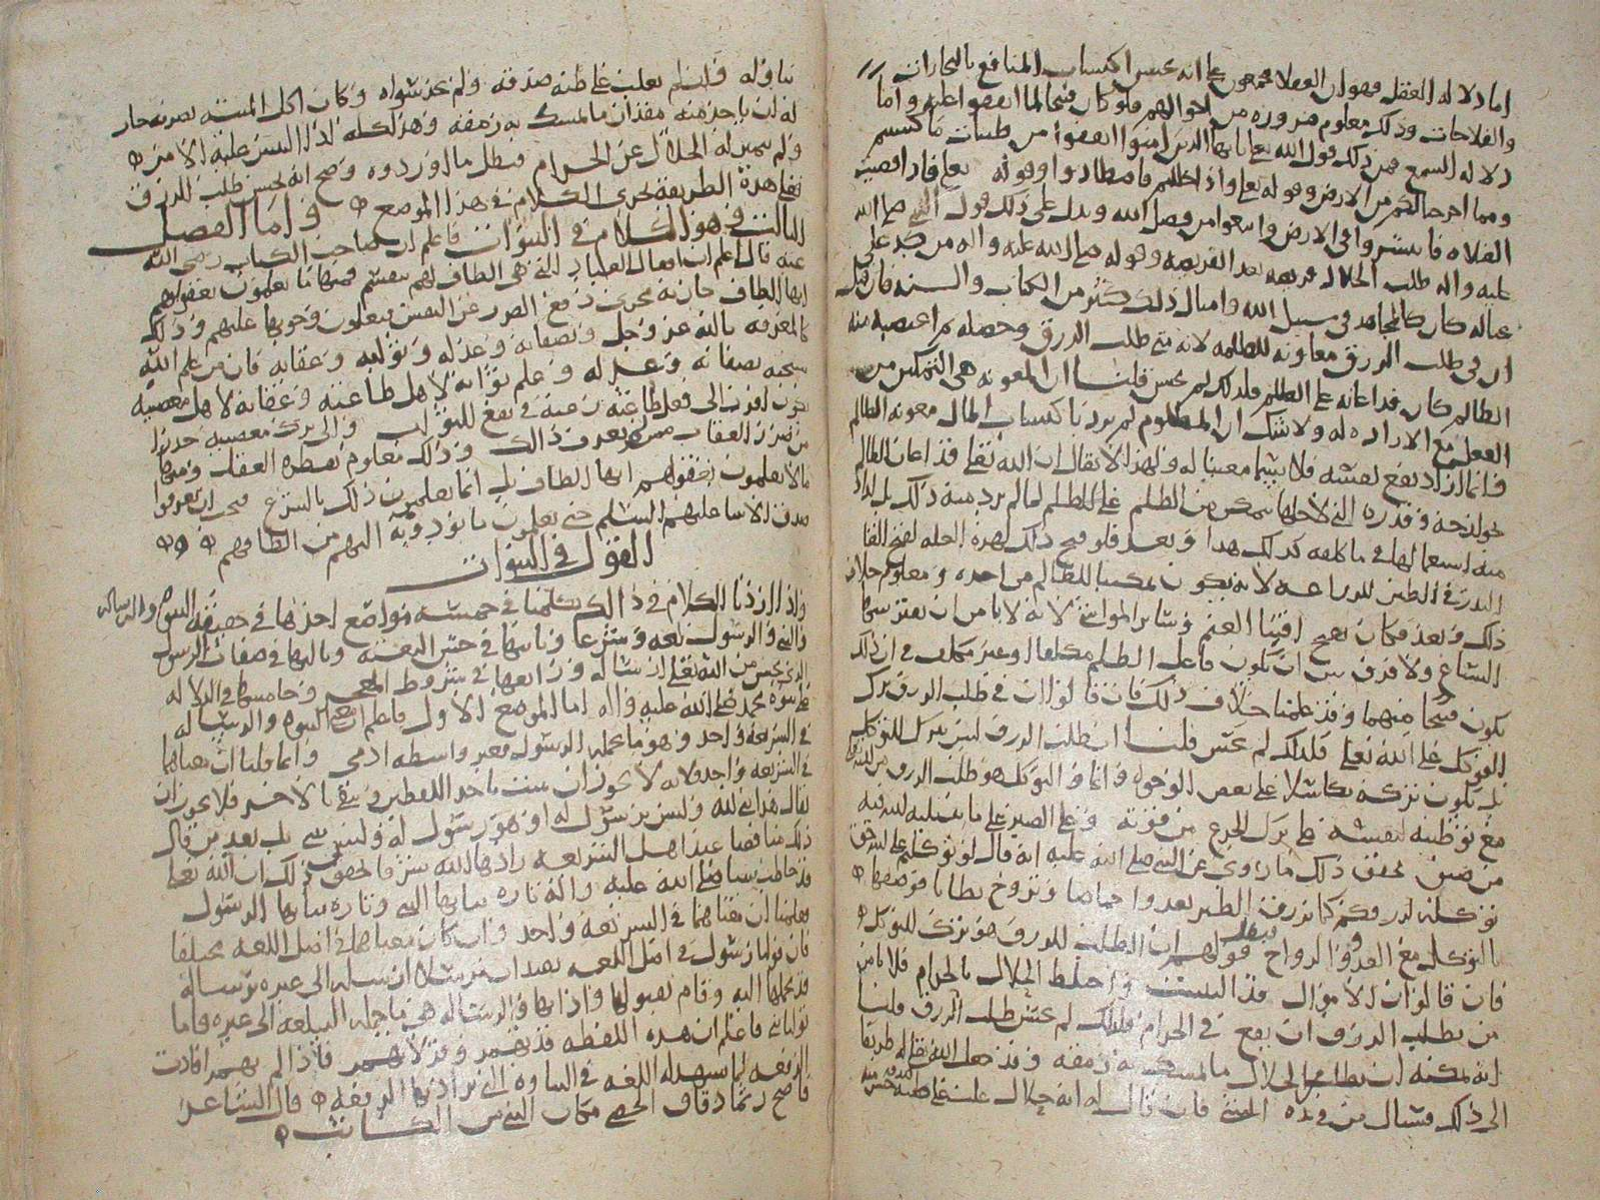 اما دلاله العقل فهو ان العقلا مجمعون على انه يحسن اكتساب المنافع بالتجارات
والفلاحات وذلك معلوم ضروره من احوالهم فلو كان قبيحا لما اتفقوا عليه واما
دلاله السمع فمن ذلك قول الله تعالى يا ايها الذين امنوا انفقوا من طيبات ما كسبتم
ومما اخرجنا لكم من الارض وقوله تعالى واذا حللتم فاصطادوا وقوله تعالى فاذا قضيت
الصلاه فانتشروا في الارض وابتغوا من فضل الله ويدل على ذلك قول النبي صلى الله
عليه واله طلب الحلال فريضه بعد الفريضه وقوله صلى الله عليه واله من كد على
عياله كان كالمجاهد في سبيل الله وامثال ذلك كثير من الكتاب والسنه فان قيل
ان في طلب الرزق معاونه للظلمه لانه متى طلب الرزق وحصله ثم اغتصبه منه
الظالم كان قد اعانه على الظلم فلذلك لم يحسن قلنا ان المعونه هي التمكين من
الفعل مع الاراده له ولا شك ان المظلوم لم يرد باكتساب المال معونه الظالم
وانما اراد نفع نفسه فلا يسمى معينا له ولهذا لا يقال ان الله تعالى قد اعان الظالم
بجوارحه وقدره التي لاجلها تمكن من الظلم على الظلم لما لم يرد منه ذلك بل اراد
منه استعمالها في ما كلفه كذلك هذا وبعد فلو قبح ذلك لهذه العله لقبح القا
البذر في الطين للزراعه لانه يكون مكسبا للظالم من احده ومعلوم خلاف
ذلك وبعد فكان يقبح اقتنا الغنم وسائر المواشي لانه لا يامن ان يفترسها
السباع ولا فرق بين ان يكون فاعل الظلم مكلفا او غير مكلف في ان ذلك
يكون قبيحا منهما وقد علمنا خلاف ذلك فان قالوا ان في طلب الرزق ترك
التوكل على الله تعالى فلذلك لم يحسن قلنا ان طلب الرزق ليس بترك للتوكل
بل يكون تركه تكاسلا على بعض الوجوه وانما التوكل هو طلب الرزق من
مع توطينه لنفسه على ترك الجزع من فوته وعلى الصبر على ما
من ضيق يحقق ذلك ما روي عن النبي صلى الله عليه انه قال لو توكلتم على الله حق
توكله لرزقكم كما يرزق الطير يغدوا خماصا وتروح بطانا فوصفها
بالتوكل مع الغدو والرواح فبطل قولهم ان الطلب للرزق هو ترك للتوكل
فان قالوا ان الاموال قد التبست واختلط الحلال بالحرام فلا يامن
من يطلب الرزق ان يقع في الحرام فلذلك لم يحسن طلب الرزق قلنا
انه يمكنه ان يطلب الحلال ما يمسك به رمقه وقد جعل الله تعالى له طريقا
الى ذلك فيسال من في يده الشي فان قال له انه حلال غلب على ظنه صدقه حسن منه
تناوله وان لم يغلب على ظنه صدقه ولم يجد سواه وكان اكل الميته يضره جاز
له ان ياخذ منه مقدار ما يمسك به رمقه وهذا كله اذا التبس عليه الامر
ولم يتميز له الحلال عن الحرام فبطل ما اوردوه وصح انه يحسن طلب الرزق
فعلى هذه الطريقه يجري الكلام في هذا الموضع واما الفصل
الثالث وهو الكلام في النبوات فاعلم ان صاحب الكتاب رضي الله
عنه قال اعلم ان افعال العباد التي هي الطاف لهم تنقسم فمنها ما يعلمون بعقولهم
انها الطاف جاريه مجرى دفع الضرر عن النفس فيعلمون وجوبها عليهم وذلك
كالمعرفه بالله عز وجل وبصفاته وعدله وتوابه وعقابه فان من علم الله
سبحنه بصفاته وعدله وعلم ثوابه لاهل طاعته وعقابه لاهل معصيته
يكون اقرب الى فعل طاعته رغبة في نفع الثواب والى ترك معصيته حذرا
من ضرر العقاب ممن لم يعرف ذلك وذلك معلوم بفطره العقل ومنها
ما لا يعلمون بعقولهم انها الطاف بل انما يعلمون ذلك بالشرع فيجب ان يعرفوا
صدق الانبيا عليهم السلم حتى يعلمون ما يؤدونه اليهم من الطافهم
القول في النبوات
واذا اردنا الكلام في ذلك تكلمنا في خمسه مواضع احدها في حقيقه النبوه والرساله
والنبي والرسول لغه وشرعا وثانيها في حسن البعثه وثالثها في صفات الرسول
الذي يحسن من الله تعالى ارساله ورابعها في شروط المعجز وخامسها في الدلاله
على نبوه محمد صلى الله عليه واله اما الموضع الاول فاعلم ان معنى النبوه والرساله
في الشريعه واحد وهو ما يحمله الرسول بغير واسطه ادمي وانما قلنا ان معناهما
في الشريعه واحد لانه لا يجوز ان يثبت باحد اللفظين وينفي بالاخر فلا يجوز ان
يقال هذا نبي لله وليس برسول له او هو رسول له وليس بنبي بل يعد من قال
ذلك مناقضا عند اهل الشريعه زادها الله شرفا يحقق ذلك ان الله تعالى
قد خاطب نبينا صلى الله عليه واله تاره بيا ايها النبي وتاره بيا ايها الرسول
فعلمنا ان معناهما في الشريعه واحد وان كان معناهما في اصل اللغه مختلفا
فان قولنا رسول في اصل اللغه يفيد ان مرسلا ارسله الى غيره برساله
قد تحملها اليه وقام بقبولها واداها والرساله هي ما حمله ليبلغه الى غيره فاما
قولنا نبي فاعلم ان هذه اللفظه قد تهمز وقد لا تهمز فاذا لم تهمز افادت
الرفعه لما يشهد له اللغه في النباوه التي يراد بها الرفعه قال الشاعر
فاصبح رتما دقاق الحصى مكان النبي من الكاثب